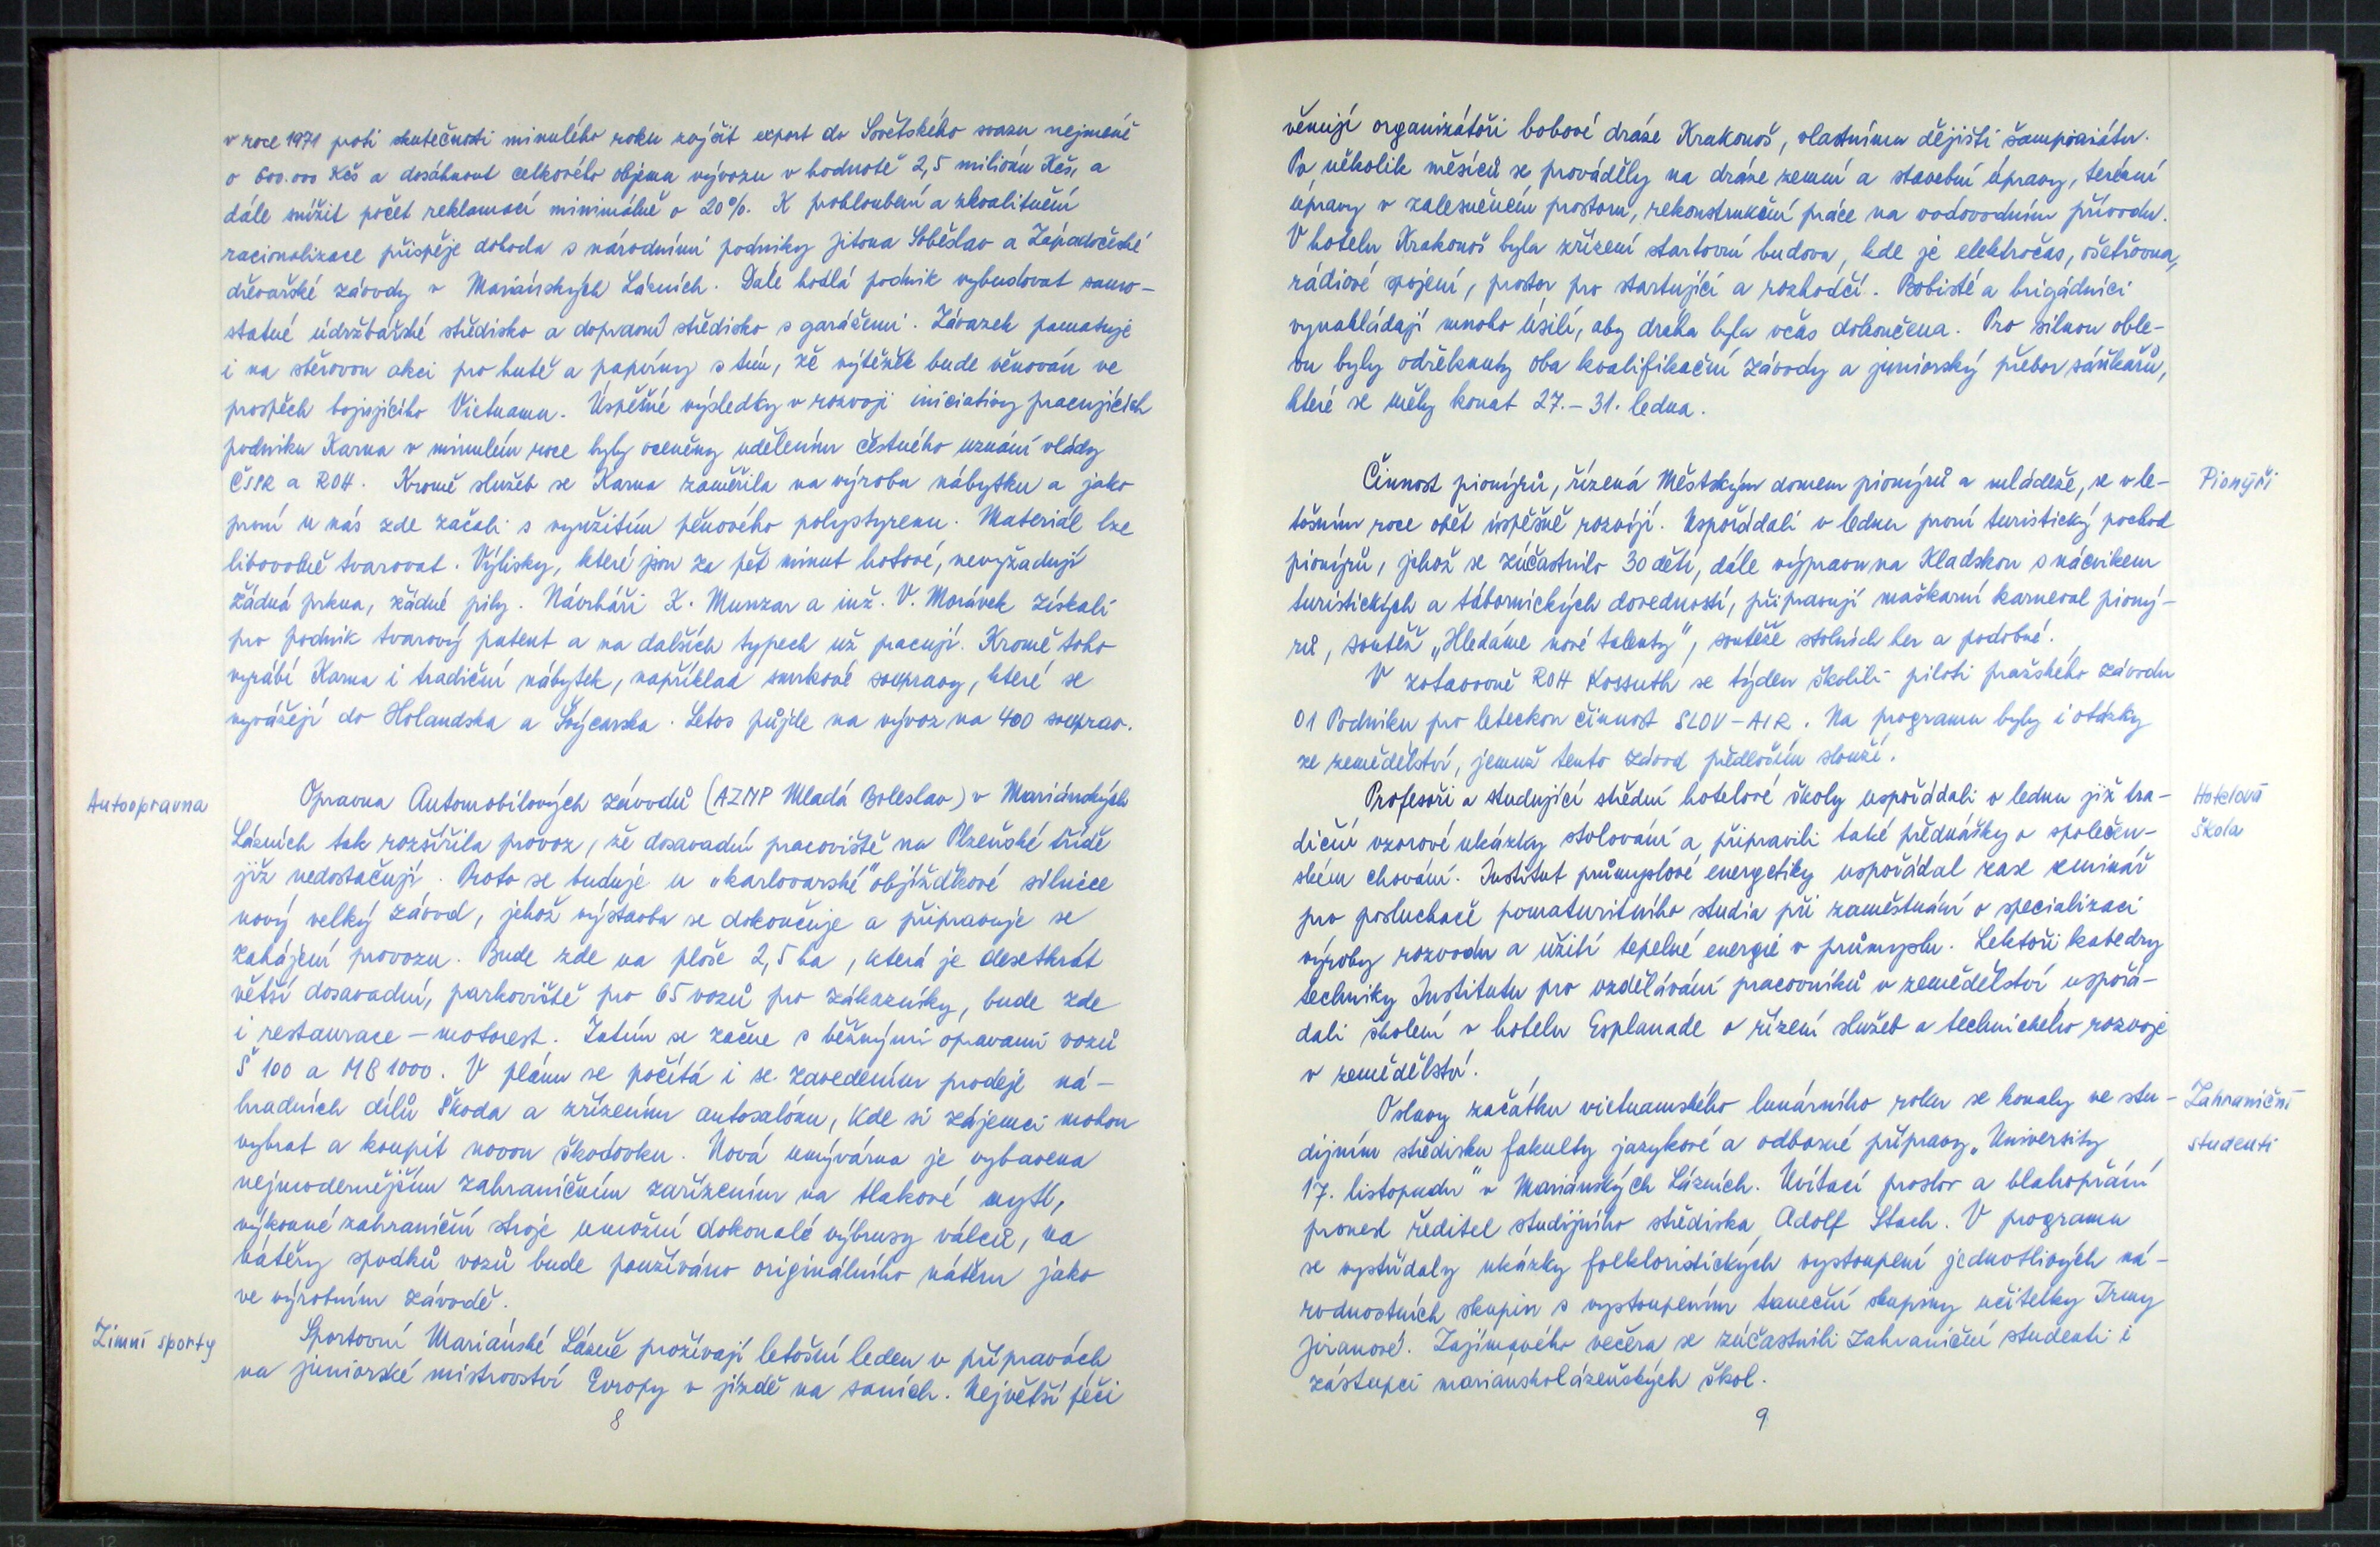 v roce 1971 proti skutečnosti minulého roku zvýšit export do Sovětského svazu nejméně
o 600.000 Kčs a dosáhnout celkového objemu vývozu v hodnotě 2,5 miliónu Kčs, a
dále snížit počet reklamací minimálně o 20%. K prohloubení a zkvalitnění
racionalizace přispěje dohoda s národními podniky Jitona Soběslav a Západočeské
dřevařské závody v Mariánských Lázních. Dále hodlá podnik vybudovat samo-
statné údržbářské středisko a dopravní středisko s garážemi. Závazek pamatuje
i na sběrovou akci pro hutě a papírny s tím, že výtěžek bude věnován ve
prospěch bojujícího Vietnamu. Úspěšné výsledky v rozvoji iniciativy pracujících
podniku Karna v minulém roce byly oceněny udělením čestného uznání vlády
ČSSR a ROH. Kromě služeb se Karna zaměřila na výrobu nábytku a jako
první u nás zde začali s využitím pěnového polystyrenu. Materiál lze
libovolně tvarovat. Výlisky, které jsou za pět minut hotové, nevyžadují
žádná prkna, žádné pily. Návrháři K. Munzar a inž. V. Morávek získali
pro podnik tvarový patent a na dalších typech už pracují. Kromě toho
vyrábí Karna i tradiční nábytek, například smrkové soupravy, které se
vyvážejí do Holandska a Švýcarska. Letos půjde na vývoz na 400 souprav.
Autoopravna
Opravna Automobilových závodů (AZNP Mladá Boleslav) v Mariánských
Lázních tak rozšířila provoz, že dosavadní pracoviště na Plzeňské třídě
již nedostačují. Proto se buduje u „karlovarské" objížďkové silnice
nový velký závod, jehož výstavba se dokončuje a připravuje se
zahájení provozu. Bude zde na ploše 2,5 ha, která je desetkrát
větší dosavadní, parkoviště pro 65 vozů pro zákazníky, bude zde
i restaurace - motorest. Zatím se začne s běžnými opravami vozů
Š 100 a MB 1000. V plánu se počítá i se zavedením prodeje ná-
hradních dílů Škoda a zřízením autosalónu, kde si zájemci mohou
vybrat a koupit novou škodovku. Nová umývárna je vybavena
nejmodernějším zahraničním zařízením na tlakové mytí,
výkonné zahraniční stroje umožní dokonalé výbrusy válců, na
nátěry spodků vozů bude používáno originálního nátěru jako
ve výrobním závodě.
Zimní sporty
Sportovní Mariánské Lázně prožívají letošní leden v přípravách
na juniorské mistrovství Evropy v jízdě na saních. Největší péči
8
věnují organizátoři bobové dráze Krakonoš, vlastnímu dějišti šampionátu.
Po několik měsíců se prováděly na dráze zemní a stavební úpravy, terénní
úpravy v zalesněném prostoru, rekonstrukční práce na vodovodním přívodu.
V hotelu Krakonoš byla zřízení startovní budova, kde je elektročas, ošetřovna,
rádiové spojení, prostor pro startující a rozhodčí. Bobisté a brigádníci
vynakládají mnoho úsilí, aby dráha byla včas dokončena. Pro silnou oble-
vu byly odřeknuty oba kvalifikační závody a juniorský přebor sáňkařů,
které se měly konat 27.-31. ledna.
Pionýři
Činnost pionýrů, řízená Městským domem pionýrů a mládeže, se v le-
tošním roce opět úspěšně rozvíjí. Uspořádali v lednu první turistický pochod
pionýrů, jehož se zúčastnilo 30 dětí, dále výpravu na Kladskou s nácvikem
turistických a tábornických dovedností, připravují maškarní karneval pioný-
rů, soutěž „Hledáme nové talenty", soutěže stolních her a podobné.
V zotavovně ROH Kossuth se týden školili piloti pražského závodu
01 Podniku pro leteckou činnost SLOV-AIR. Na programu byly i otázky
ze zemědělství, jemuž tento závod především slouží.
Hotelová
škola
Profesoři a studující střední hotelové školy uspořádali v lednu již tra-
diční vzorové ukázky stolování a připravili také přednášky o společen-
ském chování. Institut průmyslové energetiky uspořádal zase seminář
pro posluchače pomaturitního studia při zaměstnání o specializaci
výroby rozvodu a užití tepelné energie v průmyslu. Lektoři katedry
techniky Institutu pro vzdělávání pracovníků v zemědělství uspořá-
dali školení v hotelu Esplanade o řízení služeb a technického rozvoje
v zemědělství.
Zahraniční
studenti
Oslavy začátku vietnamského lunárního roku se konaly ve stu-
dijním středisku fakulty jazykové a odborné přípravy „University
17. listopadu" v Mariánských Lázních. Uvítací proslov a blahopřání
pronesl ředitel studijního střediska Adolf Stach. V programu
se vystřídaly ukázky folkloristických vystoupení jednotlivých ná-
rodnostních skupin s vystoupením taneční skupiny učitelky Irmy
Jiranové. Zajímavého večera se zúčastnili zahraniční studenti i
zástupci mariánskolázeňských škol.
9